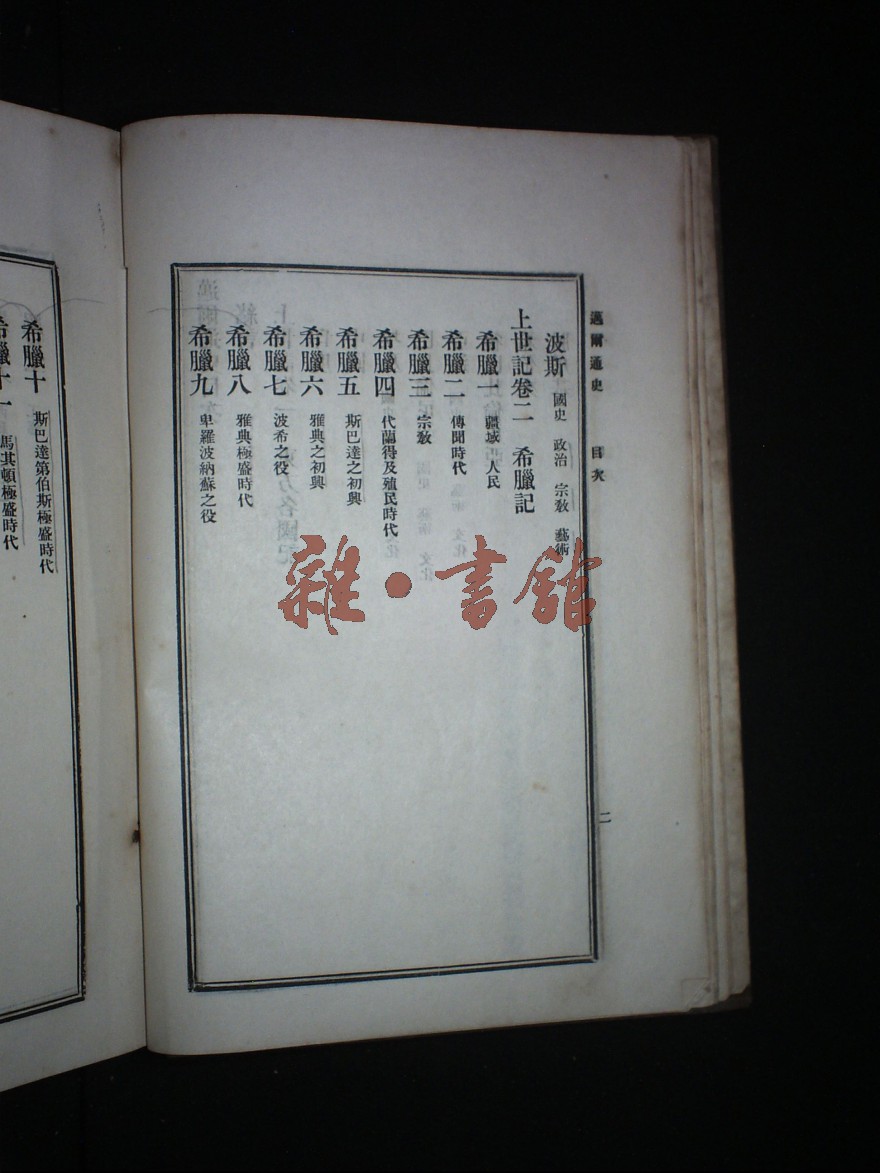 邁爾通史 目次
二
波斯 國史 政治 宗敎 藝術
上世記卷二 希臘記
希臘一 疆域 人民
希臘二 傳聞時代
希臘三 宗敎
希臘四 代蘭得及殖民時代
希臘五 斯巴達之初興
希臘六 雅典之初興
希臘七 波希之役
希臘八 雅典極盛時代
希臘九 卑羅波納蘇之役
希臘十 斯巴達第伯斯極盛時代
希臘十一 馬其頓極盛時代
雜·書館